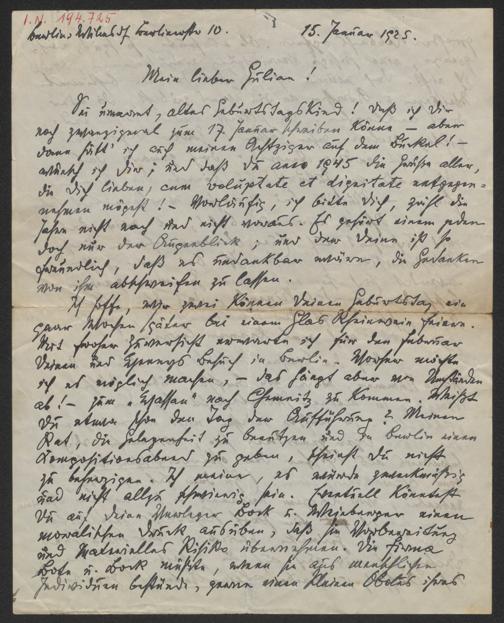 I.N. 194.725
Berlin-Wilmersdf. Berlinerstr 10. 15. Januar 1925.
Mein lieber Julian!
Sei umarmt, altes Geburtstagskind! Daß ich Dir
noch zwanzigmal zum 17 Januar schreiben könne – aber
dann hätt' ich auch meinen Achtziger auf dem Buckel! –
wünsch ich Dir; und daß Du anno 1945 die Grüße aller,
die Dich lieben, cum voluptate et dignitate entgegen-
nehmen mögest! – Vorläufig, ich bitte Dich, zähl die
Jahre nicht nach und nicht voraus. Es gehört einem jeden
doch nur der Augenblick; und der Deine ist so
freundlich, daß es undankbar wäre, die Gedanken
von ihm abschweifen zu lassen.
Ich hoffe, wir zwei können Deinen Geburtstag ein
paar Wochen später bei einem Glas Rheinwein feiern.
Mit froher Zuversicht erwarte ich für den Februar
Deinen und Besuch in Berlin. Vorher möchte
ich es möglich machen, – das hängt aber von Umständen
ab! – zum "Hassan" nach Chemnitz zu kommen. Weißt
Du etwa schon den Tag der Aufführung? Meinen
Rat, die Gelegenheit zu benützen und in Berlin einen
Kompositionsabend zu geben, scheinst Du nicht
zu beherzigen. Ich meine, es würde zweckmäßig
und nicht allzu schwierig sein. Eventuell könntest
Du auf Deine Verleger Bock u. einen
moralischen Druck ausüben, daß sie Vorbereitung
und Materielles Risiko übernehmen. Die Firma
Bote u. Bock müßte, wenn sie aus menschlichen
Individuen bestünde, gerne einen kleinen Obolus ihres